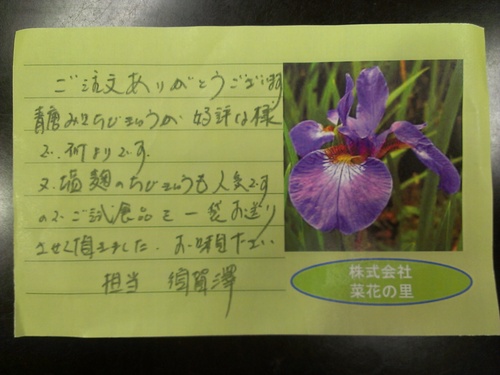 ご注文ありがとうございます
青唐みそちびきゅうが 好評な様
で、何よりです。
又、塩麹のちびきゅうも人気です
ので ご試食品を一袋お送り
させて頂きました。お味見下さい
担当 須賀澤
株式会社
菜花の里